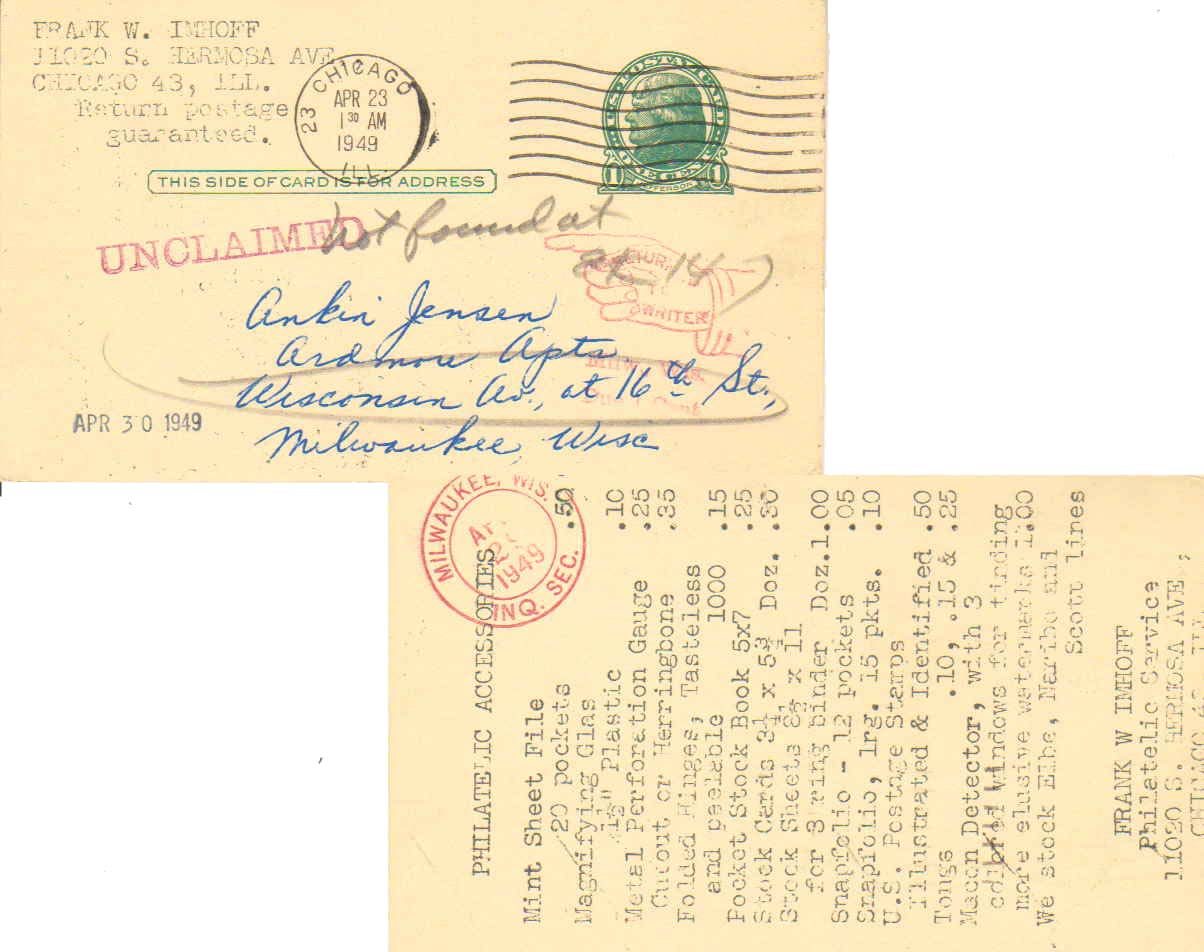 FRANK W. IMHOFF
11020 S. HERMOSA AVE
CHICAGO 43, ILL.
Return postage
guaranteed.
23 CHICAGO
APR 23
1 30 AM
1949
ILL.
U.S. POSTAL CARD
1 CENT 1
JEFFERSON
THIS SIDE OF CARD IS FOR ADDRESS
UNCLAIMED
Not found at
WRITER
Ankin Jensen
Ardmore Apts
Wisconsin Av., at 16th St.,
Milwaukee, Wisc
APR 30 1949
MILWAUKEE, WIS.
1949
INQ. SEC.
PHILATELIC ACCESSORIES
Mint Sheet File
20 pockets .50
Magnifying Glas
Plastic .10
Metal Perforation Gauge .25
Cudout or Herringbone .35
Folded Hinges, Tasteless
and peelable 1000 .15
Pocket Stock Book 5x7 .25
Stock Cards 3½ x 5¾ Doz. .30
Stock Sheets 8½ x 11
for 3 ring binder Doz.1.00
Snapfolio - 12 pockets .05
Snapfolio, lrg. 15 pkts. .10
U.S. Postage Stamps
Illustrated & Identified .50
Tongs .10, .15 & .25
Macon Detector, with 3
colored windows for finding
more elusive watermarks 1.00
We stock Elbe, Naribo and
Scott lines
FRANK W IMHOFF
Philatelic Service
11020 S. HERMOSA AVE